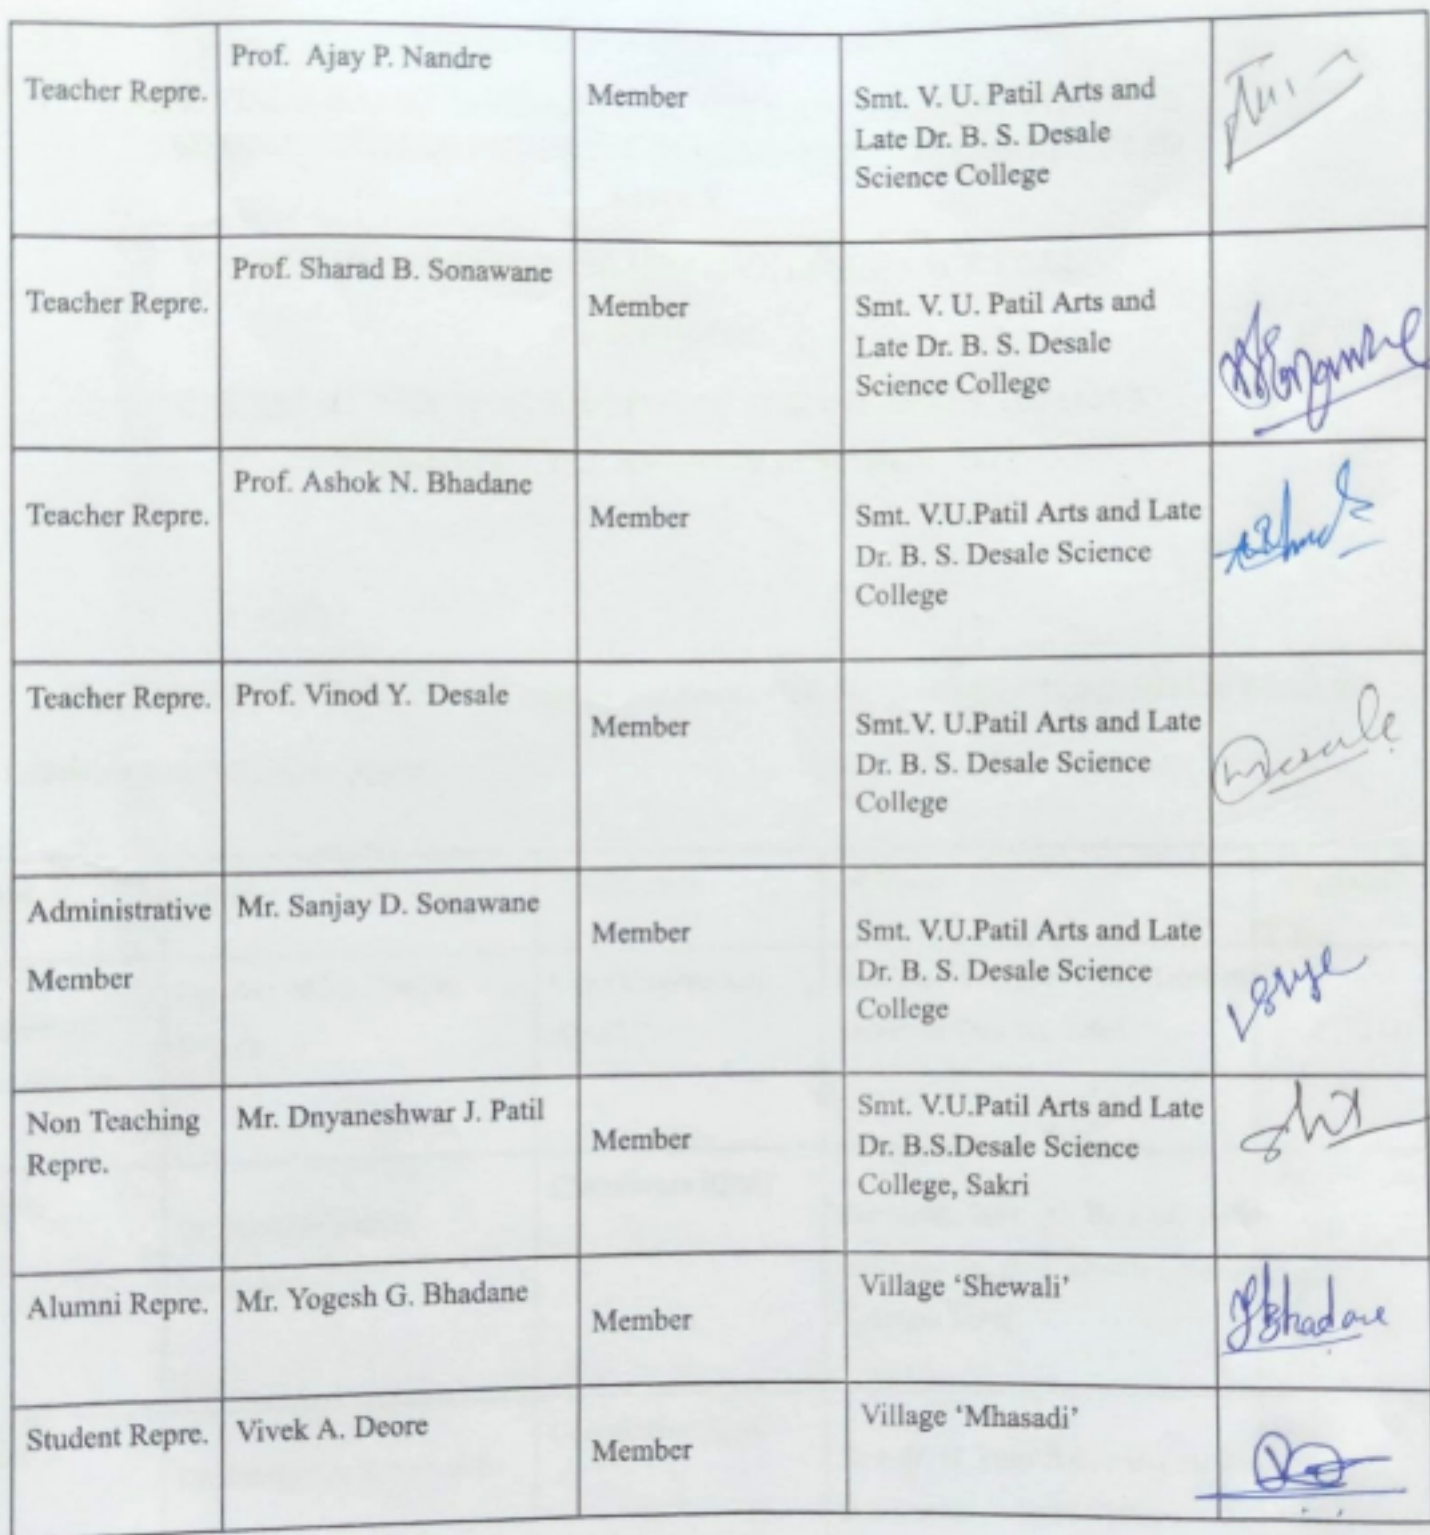 Teacher Repre.
Prof. Ajay P. Nandre
Member
Smt. V. U. Patil Arts and
Late Dr. B. S. Desale
Science College
Teacher Repre.
Prof. Sharad B. Sonawane
Member
Smt. V. U. Patil Arts and
Late Dr. B. S. Desale
Science College
Teacher Repre.
Prof. Ashok N. Bhadane
Member
Smt. V.U.Patil Arts and Late
Dr. B. S. Desale Science
College
Teacher Repre.
Prof. Vinod Y. Desale
Member
Smt.V. U.Patil Arts and Late
Dr. B. S. Desale Science
College
Desale
Administrative
Member
Mr. Sanjay D. Sonawane
Member
Smt. V.U.Patil Arts and Late
Dr. B. S. Desale Science
College
Non Teaching
Repre.
Mr. Dnyaneshwar J. Patil
Member
Smt. V.U.Patil Arts and Late
Dr. B.S.Desale Science
College, Sakri
Alumni Repre.
Mr. Yogesh G. Bhadane
Member
Village ‘Shewali’
Bhadane
Student Repre.
Vivek A. Deore
Member
Village ‘Mhasadi’